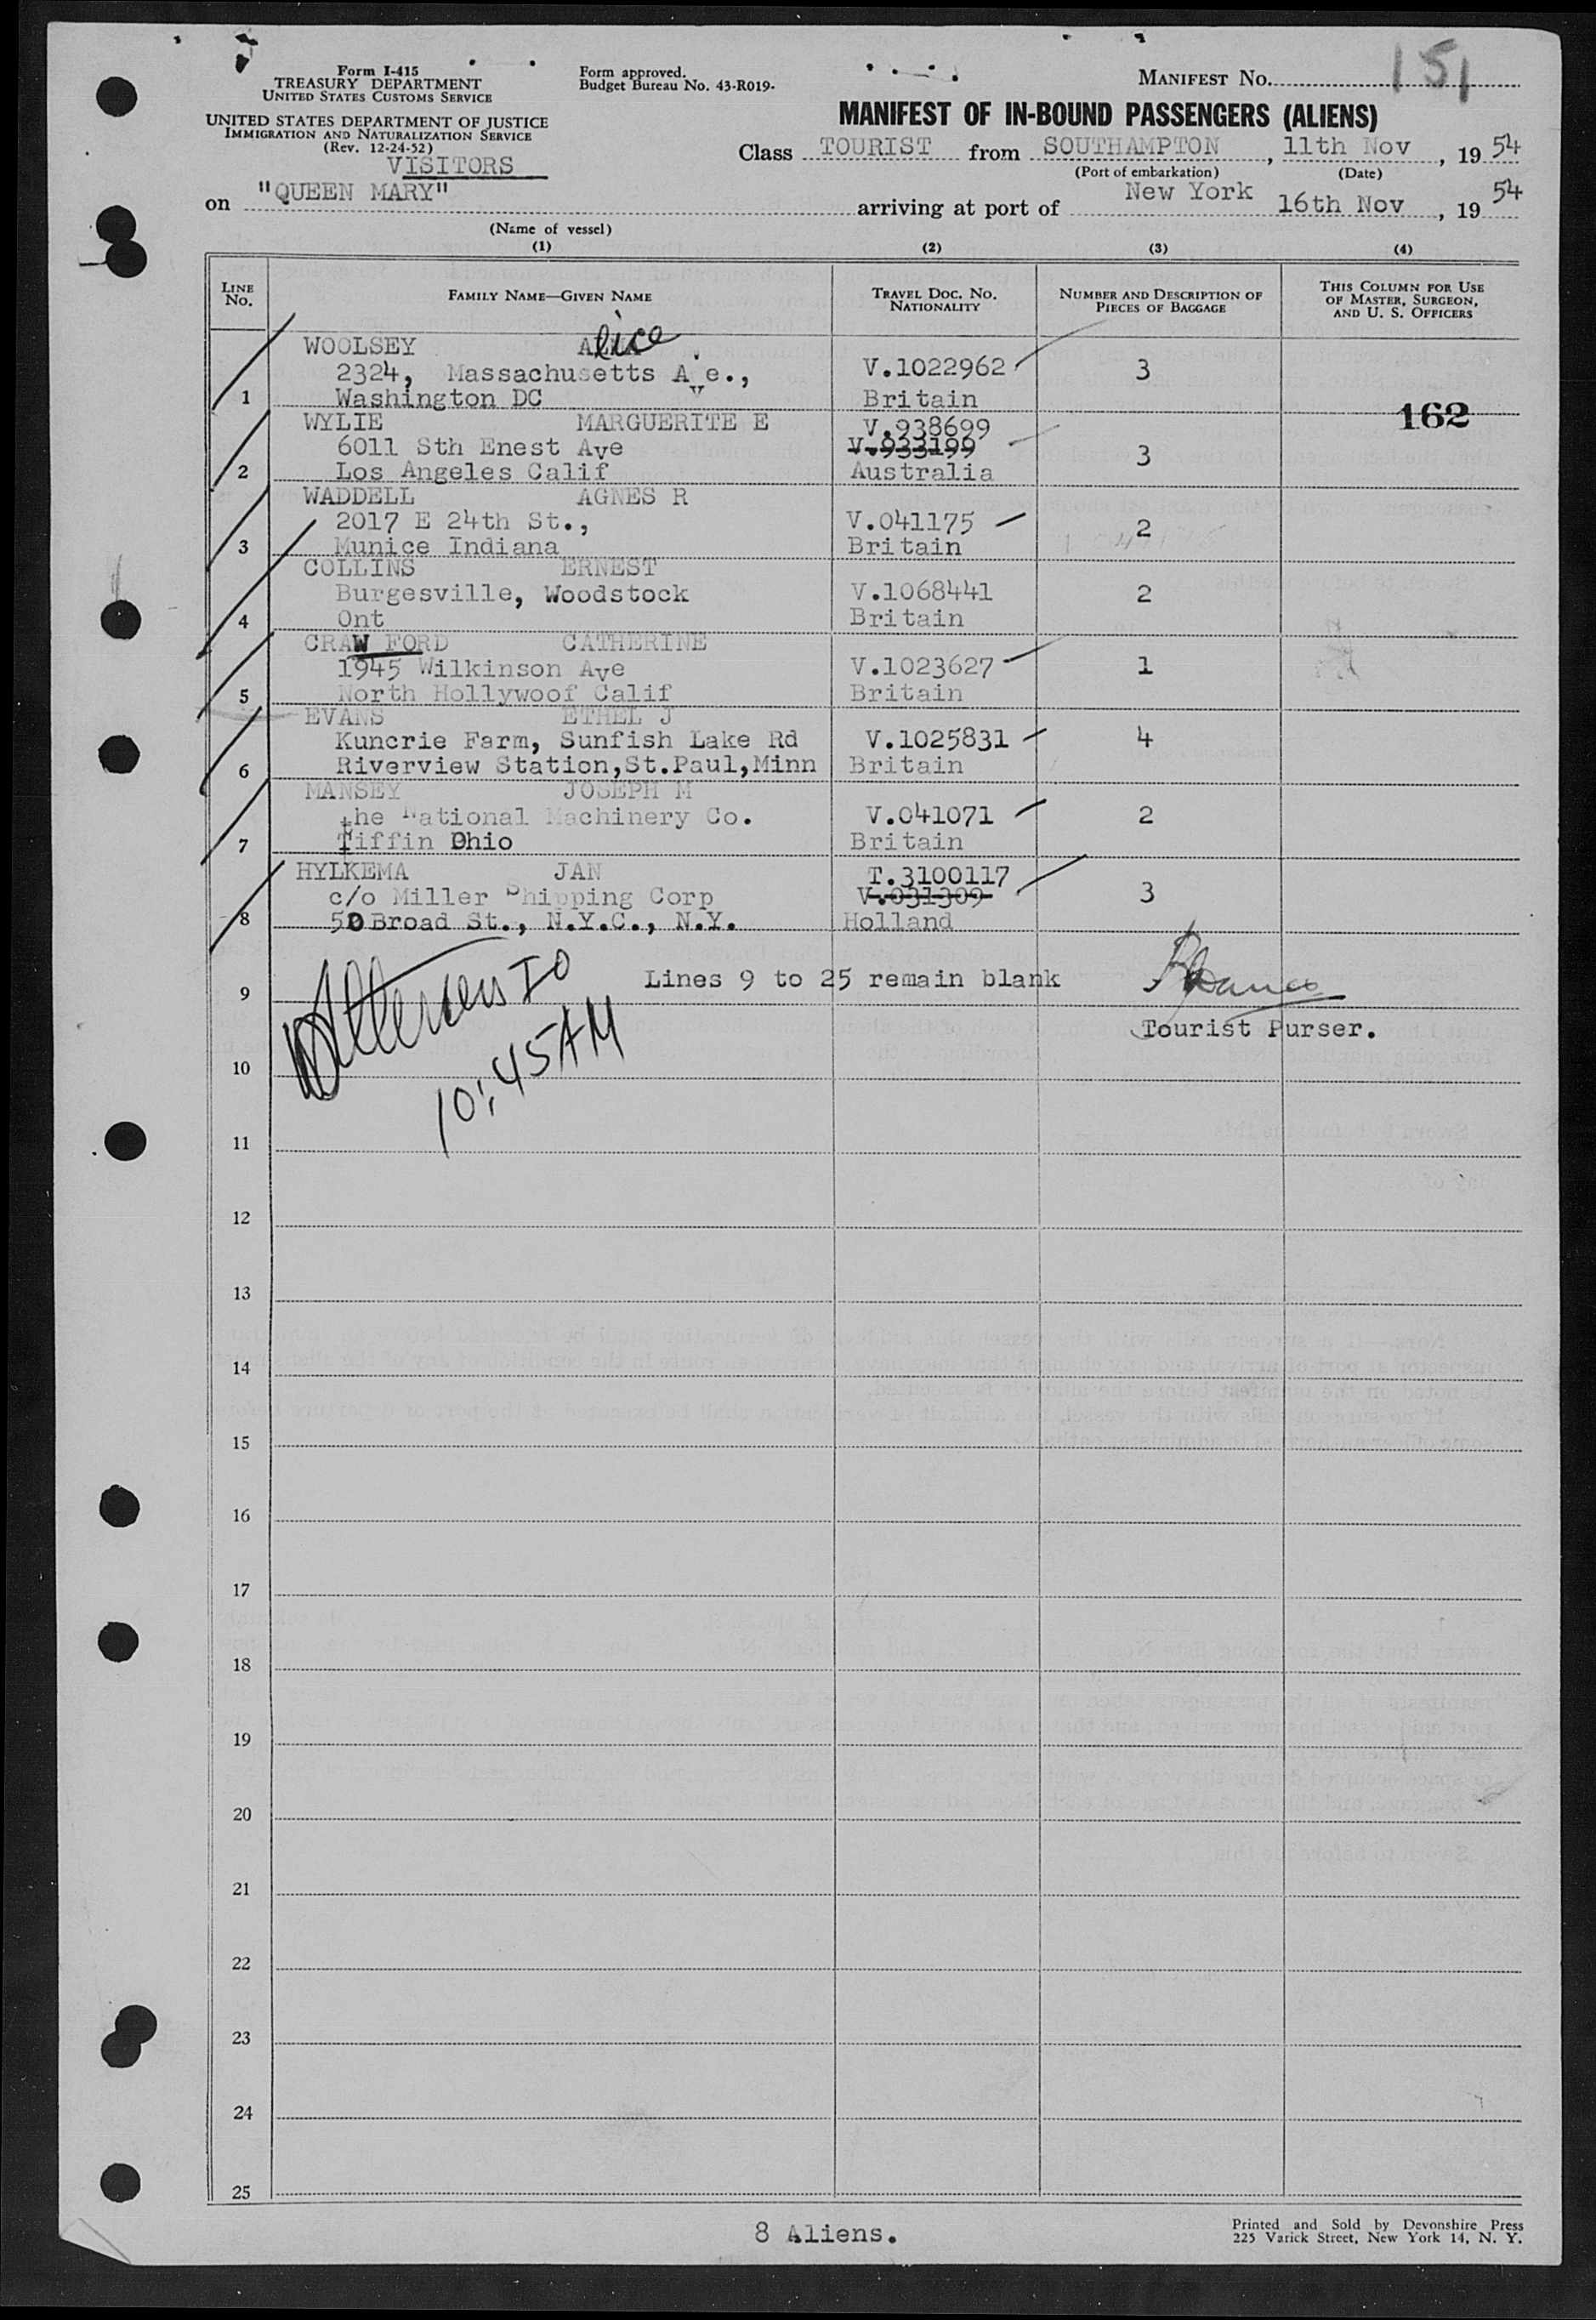 Form I-415
TREASURY DEPARTMENT
UNITED STATES CUSTOMS SERVICE
UNITED STATES DEPARTMENT OF JUSTICE
IMMIGRATION AND NATURALIZATION SERVICE
(Rev. 12-24-52)
VISITORS
Form approved.
Budget Bureau No. 43-R019.
MANIFEST No. 151
MANIFEST OF IN-BOUND PASSENGERS (ALIENS)
Class TOURIST from SOUTHAMPTON, 11th Nov, 19 54
(Port of embarkation) (Date)
on "QUEEN MARY" arriving at port of New York 16th Nov, 19 54
(Name of vessel)
(1) (2) (3) (4)
LINE No. FAMILY NAME—GIVEN NAME TRAVEL DOC. NO. NATIONALITY NUMBER AND DESCRIPTION OF PIECES OF BAGGAGE THIS COLUMN FOR USE OF MASTER, SURGEON, AND U. S. OFFICERS
WOOLSEY Alice
2324, Massachusetts Ave., V.1022962 3
1 Washington DC Britain
162
WYLIE MARGUERITE E V.938699
6011 Sth Enest Ave V.933199 3
2 Los Angeles Calif Australia
WADDELL AGNES R
2017 E 24th St., V.041175 2
3 Munice Indiana Britain
COLLINS ERNEST
Burgesville, Woodstock V.1068441 2
4 Ont Britain
CRAW FORD CATHERINE
1945 Wilkinson Ave V.1023627 1
5 North Hollywoof Calif Britain
EVANS ETHEL J
Kuncrie Farm, Sunfish Lake Rd V.1025831 4
6 Riverview Station,St.Paul,Minn Britain
MANSEY JOSEPH M
the National Machinery Co. V.041071 2
7 Tiffin Ohio Britain
HYLKEMA JAN T.3100117
c/o Miller Shipping Corp V.031309 3
8 50 Broad St., N.Y.C., N.Y. Holland
9 Lines 9 to 25 remain blank
Tourist Purser.
10
10:45AM
11
12
13
14
15
16
17
18
19
20
21
22
23
24
25
8 Aliens.
Printed and Sold by Devonshire Press
225 Varick Street, New York 14, N. Y.